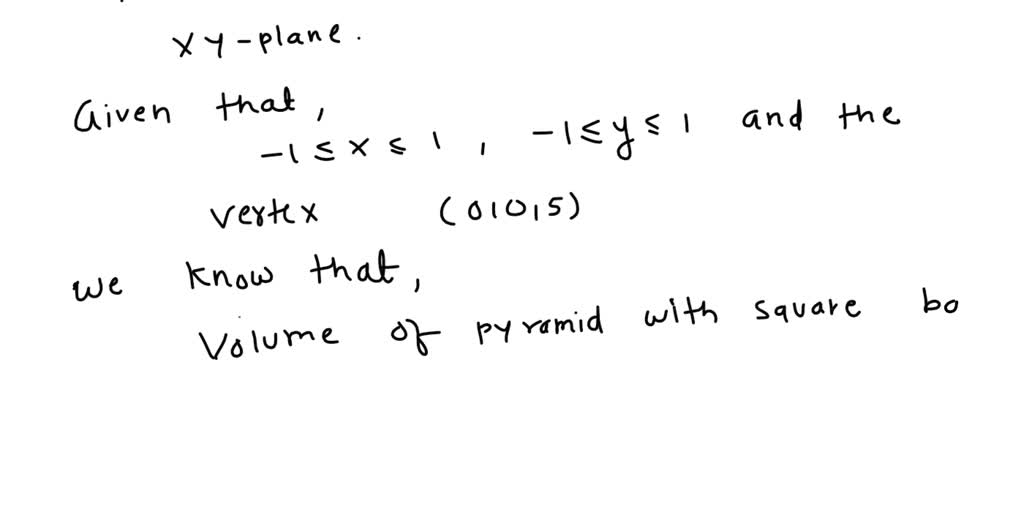 XY-plane.
Given that,
-1 ≤ x ≤ 1, -1 ≤ y ≤ 1 and the
vertex (0,0,5)
we know that,
Volume of pyramid with square ba